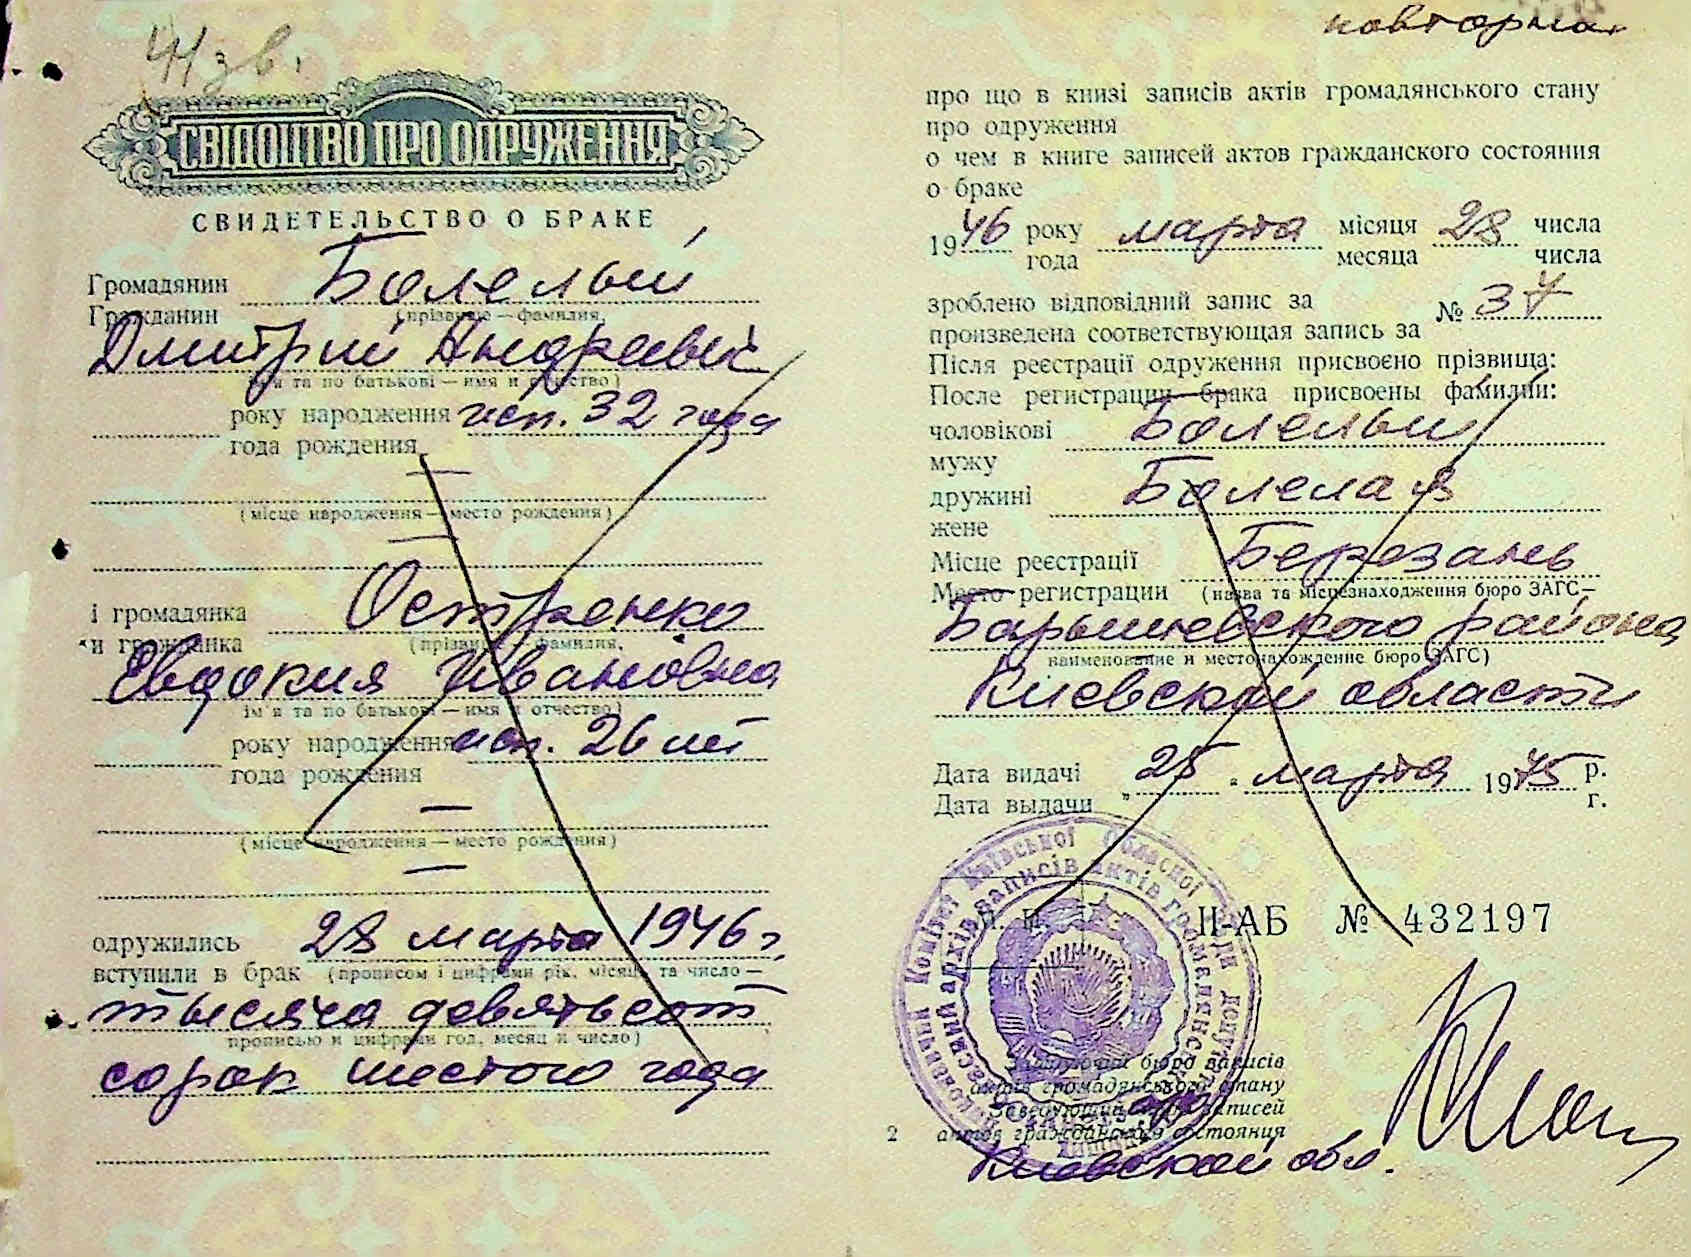 41 зв.
СВІДОЦТВО ПРО ОДРУЖЕННЯ
СВИДЕТЕЛЬСТВО О БРАКЕ
Громадянин Болелый
Гражданин (прізвище — фамилия,
Дмитрий Андреевич
ім'я та по батькові — имя и отчество)
року народження исп. 32 года
года рождения
—
(місце народження — место рождения)
—
і громадянка Остренко
и гражданка (прізвище — фамилия,
Евдокия Ивановна
ім'я та по батькові — имя и отчество)
року народження исп. 26 лет
года рождения
—
(місце народження — место рождения)
—
одружились 28 марта 1946 г.
вступили в брак (прописом і цифрами рік, місяць та число —
тысяча девятьсот
прописью и цифрами год, месяц и число)
сорок шестого года
повторное
про що в книзі записів актів громадянського стану
про одруження
о чем в книге записей актов гражданского состояния
о браке
1946 року марта місяця 28 числа
года месяца числа
зроблено відповідний запис за № 37
произведена соответствующая запись за
Після реєстрації одруження присвоєно прізвища:
После регистрации брака присвоены фамилии:
чоловікові Болелый
мужу
дружині Болелая
жене
Місце реєстрації Березань
Место регистрации (назва та місцезнаходження бюро ЗАГС —
Барышевского района
наименование и местонахождение бюро ЗАГС)
Киевской области
Дата видачі "25" марта 1975 р.
Дата выдачи г.
М. П. II-АБ № 432197
Виконавчий Комітет Київської Обласної Ради депутатів
архів записів актів громадянського
Завідуючий бюро записів
актів громадянського стану
Заведующий бюро записей
2 актов гражданского состояния
Киевской обл.